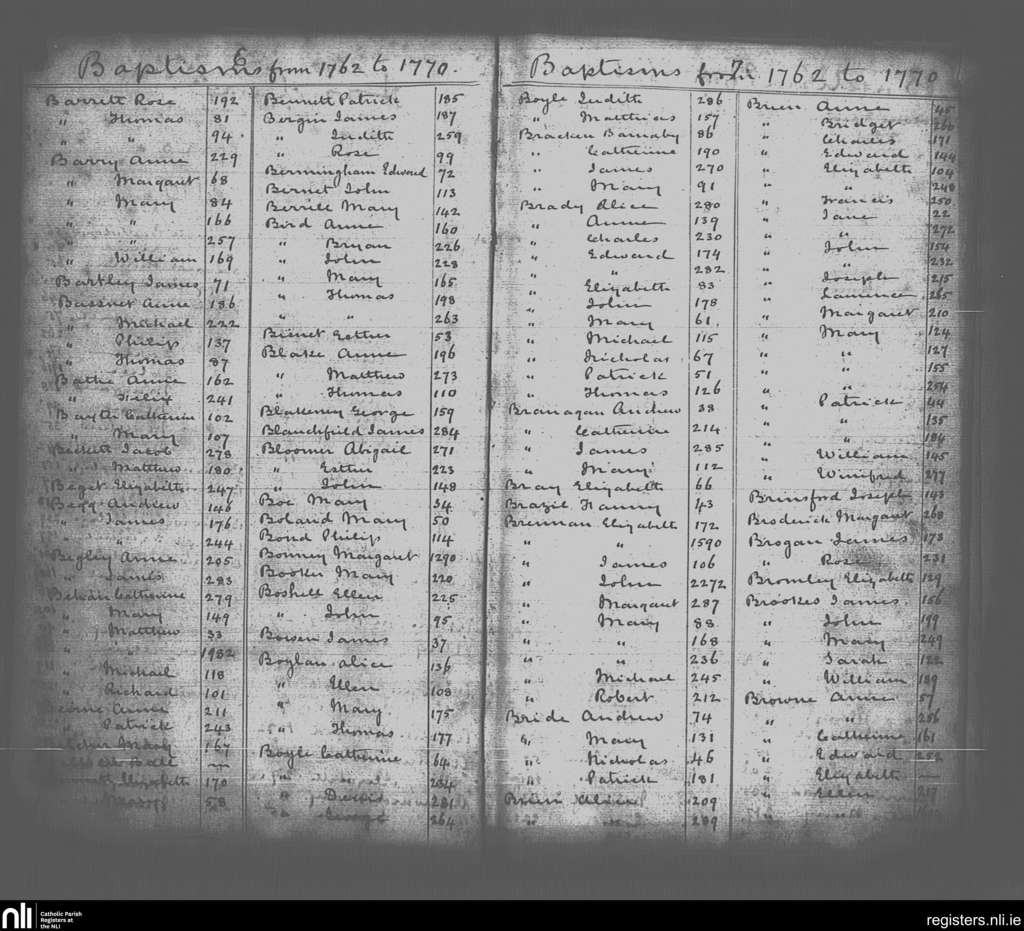 Baptisms from 1762 to 1770.
Barrett Rose 192
" Thomas 81
" " 94
Barry Anne 229
" Margaret 68
" Mary 84
" " 166
" " 257
" William 169
Bartley James 71
Bassnet Anne 186
" Michael 222
" Philip 137
" Thomas 87
Bathe Anne 162
" Felix 241
Baxter Catherine 102
" Mary 107
Beckett Jacob 278
" Matthew 180
Beget Elizabeth 247
Begg Andrew 146
" James 176
" " 244
Begley Anne 205
" James 283
Behan Catherine 279
" Mary 149
" Matthew 33
" " 1982
" Michael 118
" Richard 101
Anne 211
" Patrick 243
Mary 167
Elizabeth 170
58
Bennett Patrick 185
Bergin James 187
" Judith 259
" Rose 99
Bermingham Edward 72
Bernet John 113
Berrill Mary 142
Bird Anne 160
" Bryan 226
" John 228
" Mary 165
" Thomas 198
" " 263
Birnet Esther 53
Blake Anne 196
" Matthew 273
" Thomas 110
Blakeney George 159
Blanchfield James 284
Bloomer Abigail 271
" Esther 223
" John 148
Boe Mary 34
Boland Mary 50
Bond Philip 114
Bonney Margaret 1290
Booker Mary 220
Boshell Ellen 225
" John 95
Bowen James 37
Boylan Alice 136
" Ellen 108
" Mary 175
" Thomas 177
Boyle Catherine 64
" " 234
" Denis 281
" George 264
Baptisms from 1762 to 1770
Boyle Judith 286
" Matthias 157
Bracken Barnaby 86
" Catherine 190
" James 270
" Mary 91
Brady Alice 280
" Anne 139
" Charles 230
" Edward 174
" " 282
" Elizabeth 83
" John 178
" Mary 61
" Michael 115
" Nicholas 67
" Patrick 51
" Thomas 126
Branagan Andrew 38
" Catherine 214
" James 285
" Mary 112
Bray Elizabeth 66
Brazil Fanny 43
Brennan Elizabeth 172
" " 1590
" James 106
" John 2272
" Margaret 287
" Mary 88
" " 168
" " 236
" Michael 245
" Robert 212
Bride Andrew 74
" Mary 131
" Nicholas 46
" Patrick 181
Brien Alice 209
" " 289
Brien Anne 45
" Bridget 266
" Charles 171
" Edward 144
" Elizabeth 104
" " 248
" Francis 250
" Jane 22
" " 272
" John 154
" " 232
" Joseph 215
" Laurence 265
" Margaret 210
" Mary 124
" " 127
" " 155
" " 254
" Patrick 44
" " 135
" " 184
" William 145
" Winifred 277
Brinsford Joseph 143
Broderick Margaret 268
Brogan James 173
" Rose 231
Bromley Elizabeth 129
Brookes James 156
" John 199
" Mary 249
" Sarah 122
" William 189
Browne Anne 57
" " 256
" Catherine 161
" Edward 252
" Elizabeth
" Ellen 217
nli Catholic Parish Registers at the NLI
registers.nli.ie